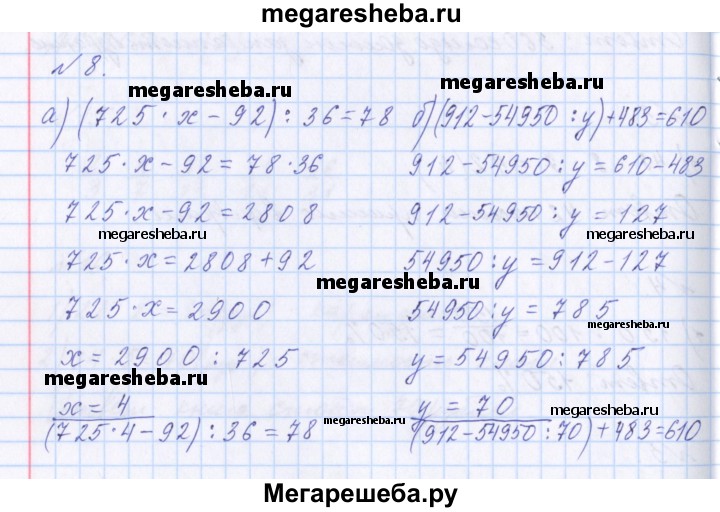 megaresheba.ru
№ 8.
megaresheba.ru megaresheba.ru
а) (725 · x − 92) : 36 = 78 б) (912 − 54950 : y) + 483 = 610
725 · x − 92 = 78 · 36 912 − 54950 : y = 610 − 483
725 · x − 92 = 2808 912 − 54950 : y = 127
megaresheba.ru megaresheba.ru
725 · x = 2808 + 92 54950 : y = 912 − 127
megaresheba.ru
725 · x = 2900 54950 : y = 785
megaresheba.ru
x = 2900 : 725 y = 54950 : 785
megaresheba.ru
x = 4 y = 70 megaresheba.ru
megaresheba.ru
(725 · 4 − 92) : 36 = 78 (912 − 54950 : 70) + 483 = 610
Мегарешеба.ру